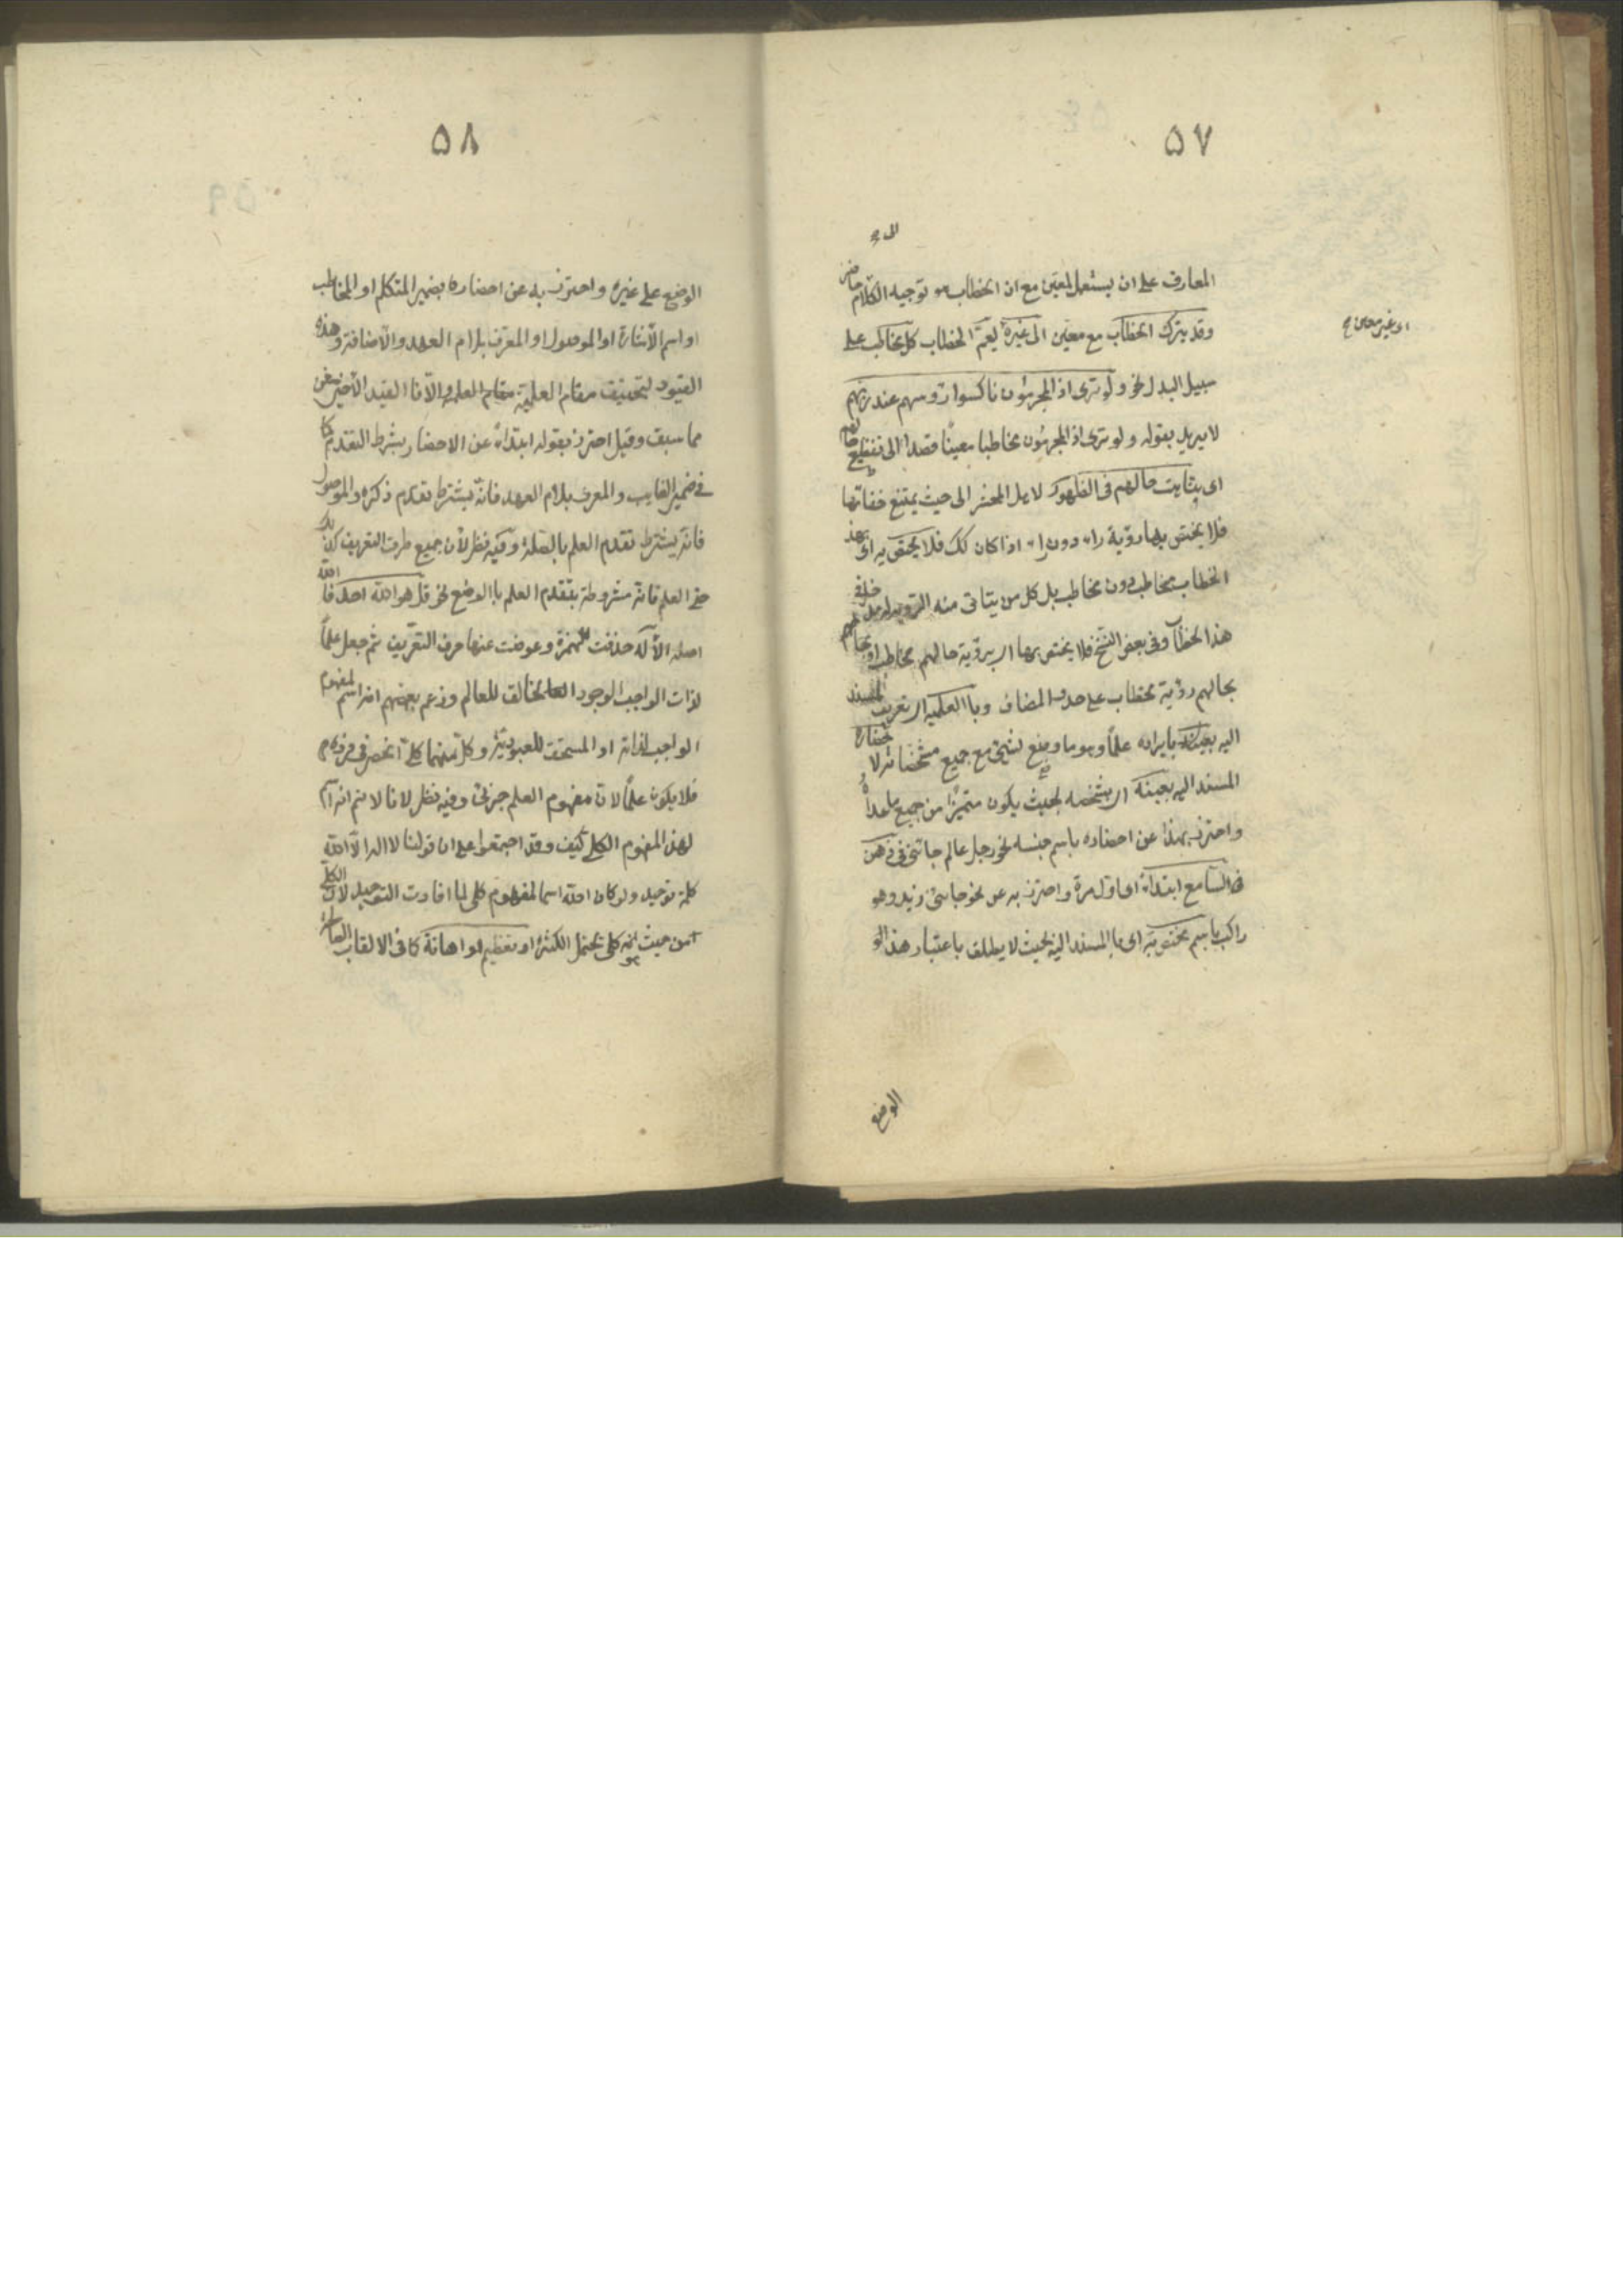 ٥٧
الى
المعارف على ان يستعمل لمعين مع ان الخطاب هو توجيه الكلام حاضر
وقد يترك الخطاب مع معين الى غيره ليعم الخطاب كل مخاطب على
او غير معين
سبيل البدل نحو ولو ترى اذ المجرمون ناكسوا رؤسهم عند ربهم
لا يريد بقوله ولو ترى اذ المجرمون مخاطبا معينا قصدا الى تفظيع حالهم
اى تناهت حالهم فى الظهور لاهل المحشر الى حيث يمتنع خفائها
فلا يختص بها رؤية راء دون راء اذا كان لك فلا يختص به اى بهذ
الخطاب مخاطب دون مخاطب بل كل من يتاتى منه الروية فله مدخل فى
هذا الخطاب وفى بعض النسخ فلا يختص بها اى برؤية حالهم مخاطب او
بحالهم رؤية مخاطب على حذف المضاف وبالعلمية اى تعريف المسند
اليه بايراده علما وهو ما وضع لشئ مع جميع مشخصاته لاحضاره
المسند اليه بعينه اى بشخصه بحيث يكون متميزا من جميع ما عداه
واحترز بهذا عن احضاره باسم جنسه نحو رجل عالم جائنى فى ذهن
السامع ابتداء اى اول مرة واحترز به عن نحو جائنى زيد وهو
راكب باسم مختص به اى بالمسند اليه بحيث لا يطلق باعتبار هذ الو
الوضع
٥٨
الوضع على غيره واحترز به عن احضاره بضمير المتكلم او المخاطب
او اسم الاشارة او الموصول او المعرف بلام العهد والاضافة وهذه
القيود لتحقيق مقام العلمية والا فا القيد الاخير مغن
مما سبق وقيل احترز بقوله ابتداء عن الاحضار بشرط التقدم كما
فى ضمير الغايب والمعرف بلام العهد فانه يشترط تقدم ذكره والموصول
فانه يشترط تقدم العلم بالصلة وفيه نظر لان جميع طرق التعريف كذلك
حتى العلم فانه مشروطة بتقدم العلم باالوضع نحو قل هو الله احد فالله
اصله الاله حذفت الهمزة وعوضت عنها حرف التعريف ثم جعل علما
لذات الواجب الوجود الخالق للعالم وزعم بعضهم انه اسم لمفهوم
الواجب لذاته او المستحق للعبودية وكل منهما كلى انحصر فى فرد
فلا يكون علما لان مفهوم العلم جزئى وفيه نظر لانا لانم انه اسم
لهذ المفهوم الكلى كيف وقد اجتمعوا على ان قولنا لا اله الا الله
كلمة توحيد ولو كان الله اسما لمفهوم كلى لما افادت التوحيد لان الكلى
من حيث انه كلى يحتمل الكثرة او تعظيم او اهانة كما فى الالقاب الصالحة